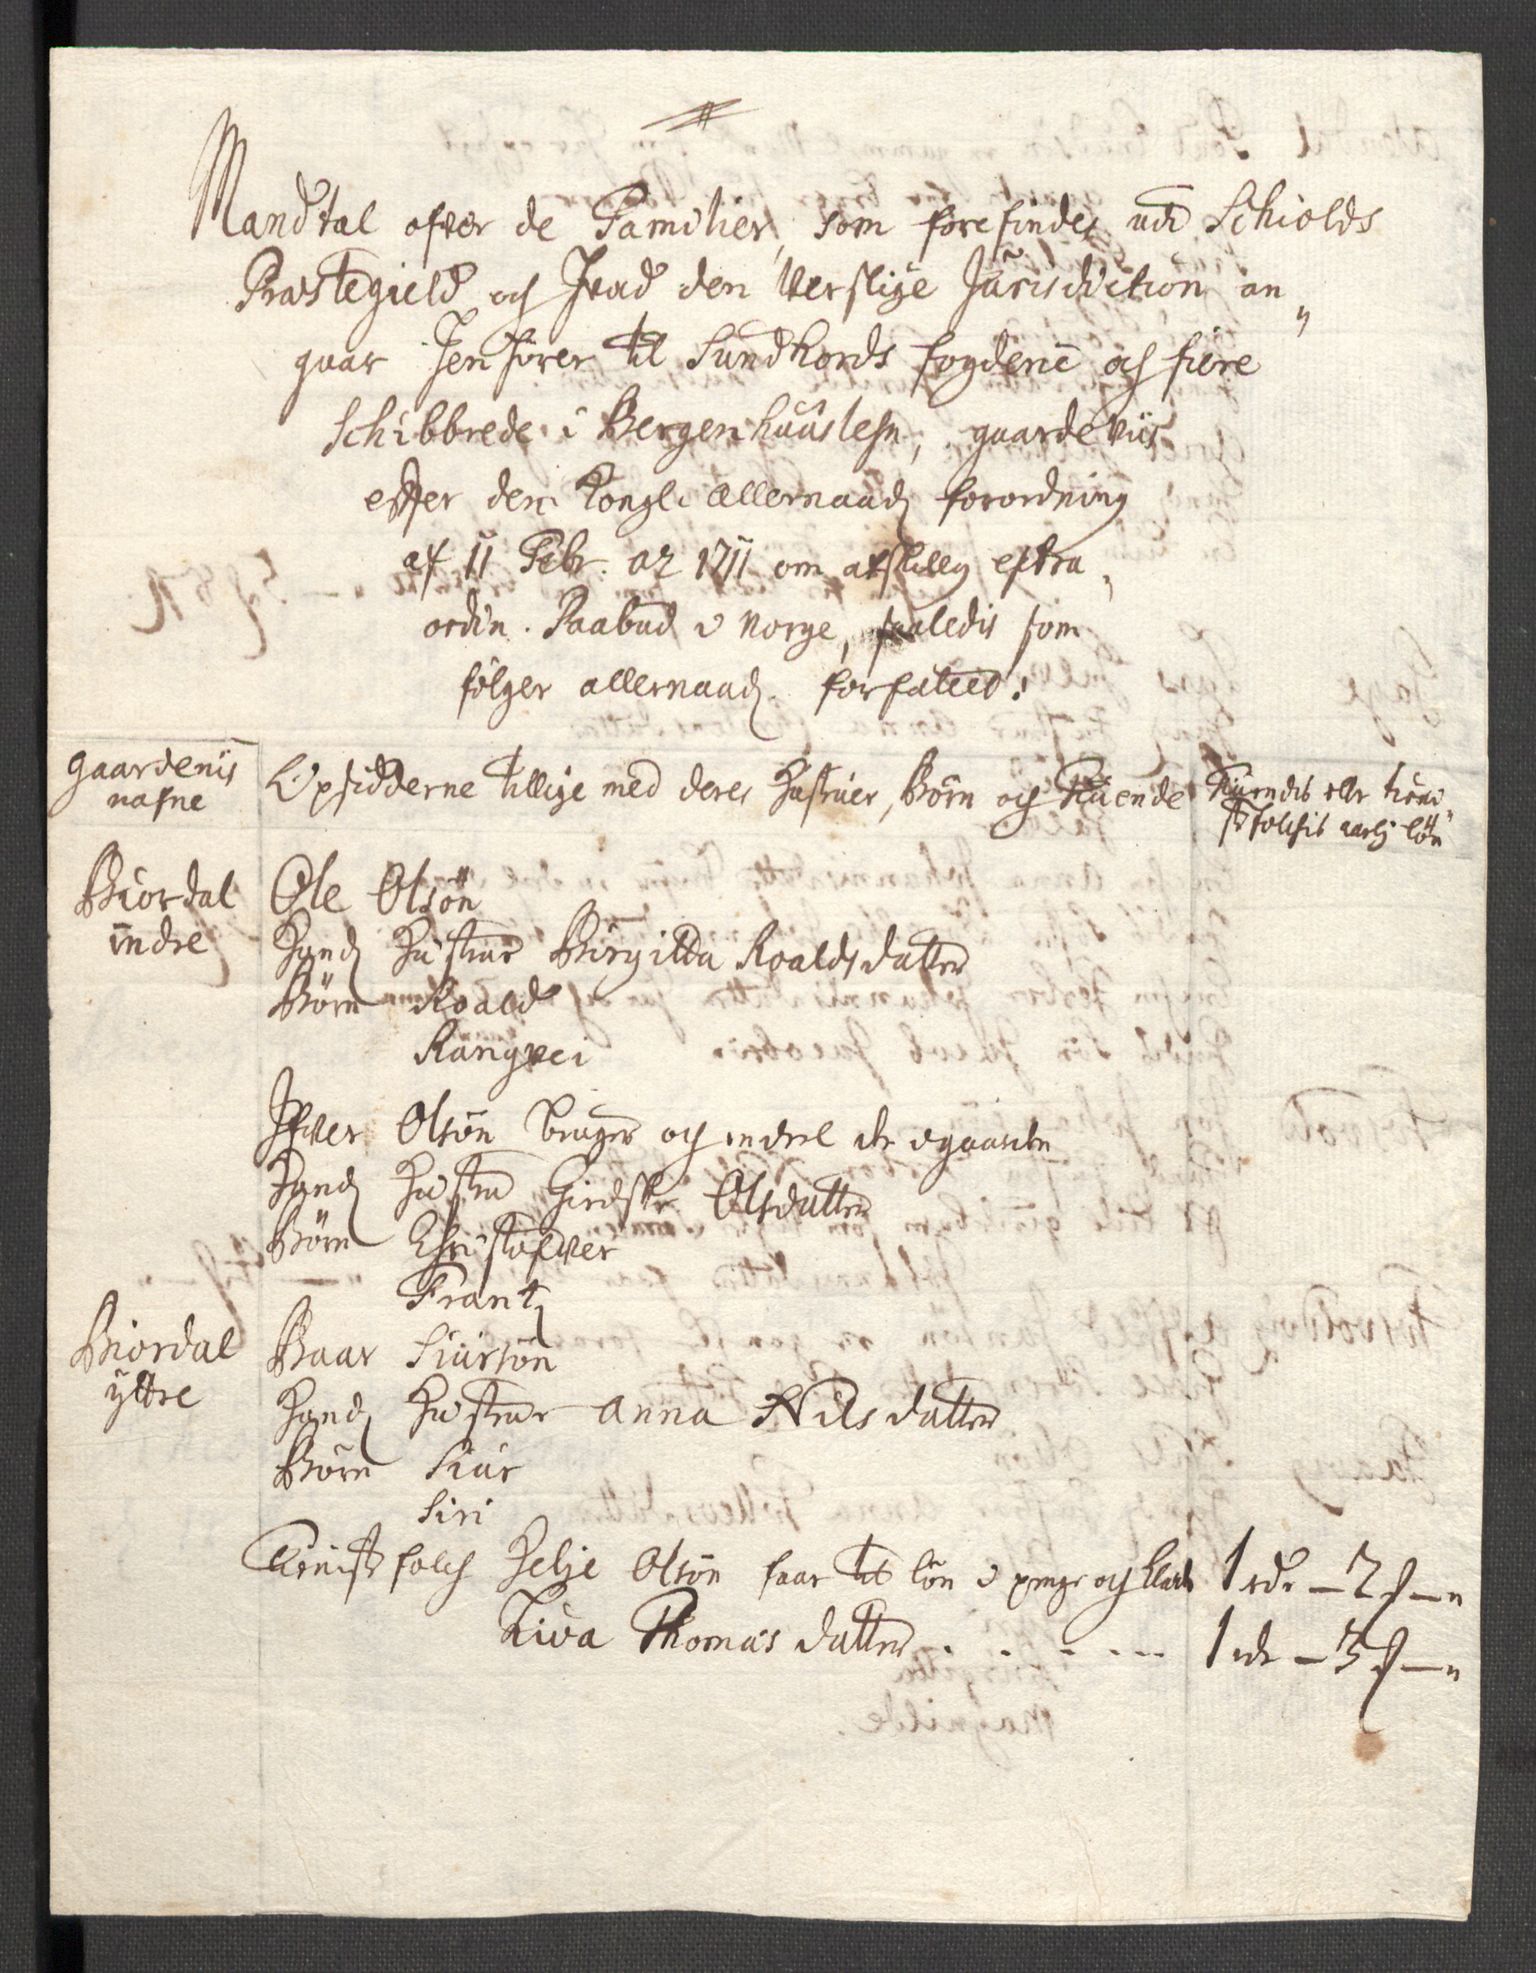 Mandtal ofver de Familier, som forefindes udi Schiolds
Præstegield och Hvad den Verslige Jurisdiction an„
gaar Henhører til Sundhords fogderie och fiere
Schibbrede i Bergenhuuslehn, gaardeviis
efter den Kongl. allernaad. forordning
af 11 Febr. ao 1711 om extra„
ordin. Paabud i Norge, saaledis som
følger allernaad. forfatted:
Gaardenis
nafne
Opsidderne tillige med deres Hustruer, Børn och Tiuende
Tiuendis eller tieni„
ste folchis aarlig løn
Biordal
indre
Ole Olsøn
Hans Hustrue Birgitta Roaldsdatter
Børn Roald
Rangvei
Ifver Olsøn bruger och endeel der i gaarden
Hans Hustru Olsdatter
Børn Christofver
Frantz
Biordal
yttre
Baar Siursøn
Hans Hustrue Anna Nilsdatter
Børn Siur
Siri
Tieniste folch Helje Olsøn faar til løn i penge och Klæder 1 rdr – 2 s – „
Thomasdatter . . . . . 1 rdr – 3 s – „